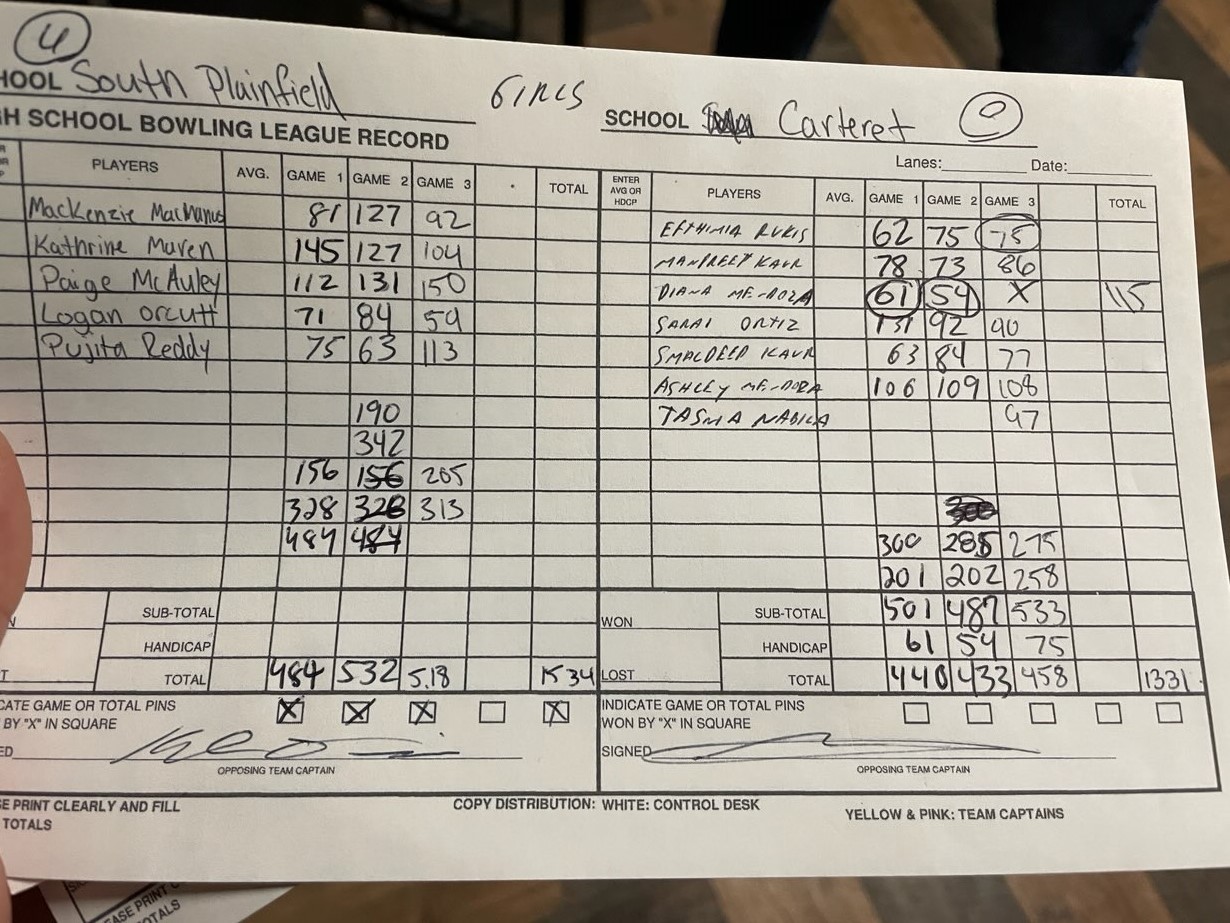 4
HOOL South Plainfield GIRLS SCHOOL Carteret 0
H SCHOOL BOWLING LEAGUE RECORD
Lanes: Date:
PLAYERS AVG. GAME 1 GAME 2 GAME 3 TOTAL
ENTER AVG OR HDCP PLAYERS AVG. GAME 1 GAME 2 GAME 3 TOTAL
MacKenzie MacManus 81 127 92
Kathrine Maven 145 127 104
Paige McAuley 112 131 150
Logan orcutt 71 84 59
Pujita Reddy 75 63 113
190
342
156 156 205
328 328 313
484 484
SUB-TOTAL
HANDICAP
TOTAL 484 532 518 1534
EFTHIMIA RUKIS 62 75 75
MANPREET KAUR 78 73 86
DIANA MENDOZA 61 54 X 115
SARAI ORTIZ 131 92 90
KAUR 63 84 77
ASHLEY MENDOZA 106 109 108
TASMA NABILA 97
300 285 275
201 202 258
WON SUB-TOTAL 501 487 533
HANDICAP 61 54 75
LOST TOTAL 440 433 458 1331
CATE GAME OR TOTAL PINS
BY "X" IN SQUARE X X X X
ED
OPPOSING TEAM CAPTAIN
INDICATE GAME OR TOTAL PINS
WON BY "X" IN SQUARE
SIGNED
OPPOSING TEAM CAPTAIN
SE PRINT CLEARLY AND FILL
TOTALS
COPY DISTRIBUTION: WHITE: CONTROL DESK YELLOW & PINK: TEAM CAPTAINS
EASE PRINT
OTALS